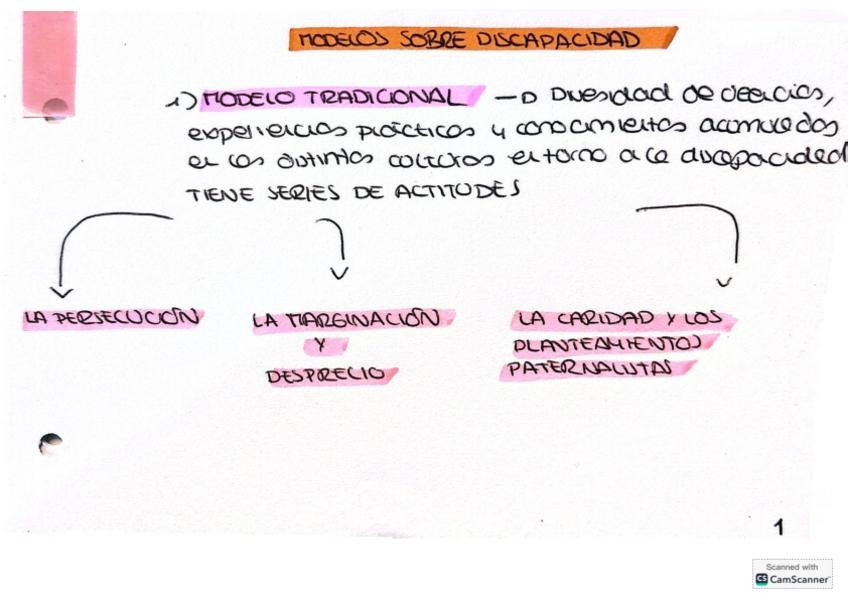 MODELOS SOBRE DISCAPACIDAD
1) MODELO TRADICIONAL → Diversidad de creencias,
experiencias prácticas y conocimientos acumulados
en las distintas culturas en torno a la discapacidad
TIENE SERIES DE ACTITUDES
LA PERSECUCIÓN
LA MARGINACIÓN
Y
DESPRECIO
LA CARIDAD Y LOS
PLANTEAMIENTOS
PATERNALISTAS
1
Scanned with
CS CamScanner